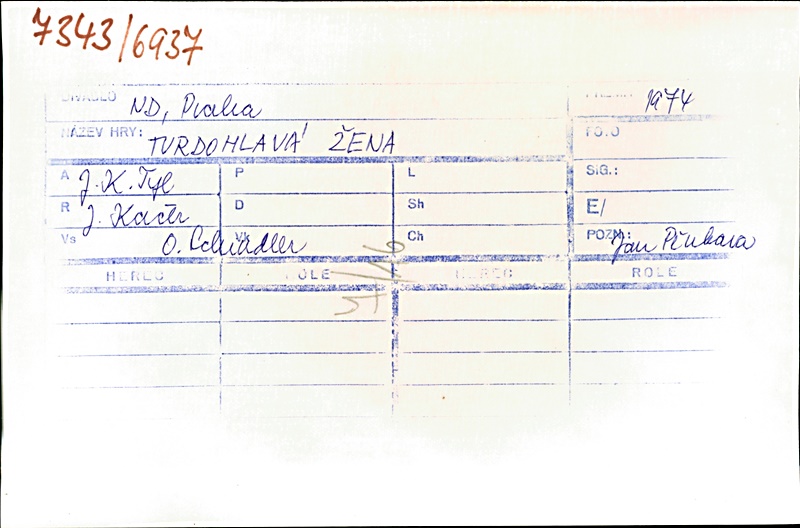 7343/6937
DIVADLO ND, Praha 1974
NÁZEV HRY: TVRDOHLAVÁ ŽENA FOTO
A J. K. Tyl P L SIG.:
R J. Kačer D Sh E/
Vs O. Schindler Vk Ch POZN.: Jan
HEREC ROLE HEREC ROLE